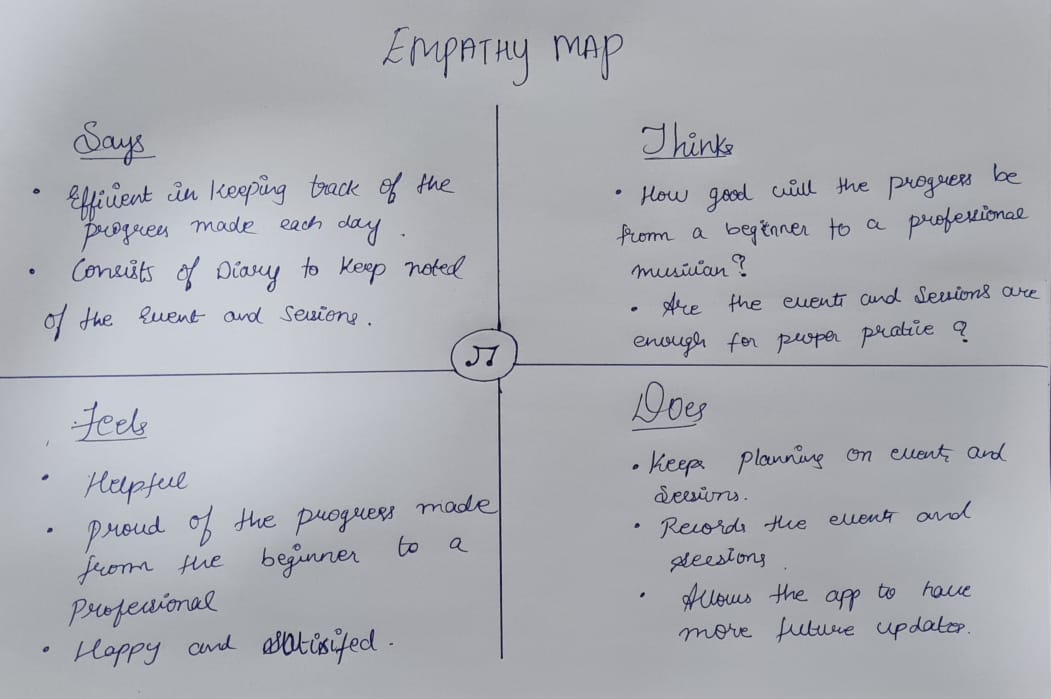 EMPATHY MAP
Says
• Efficient in keeping track of the
progress made each day.
• Consists of Diary to keep noted
of the Event and Sessions.
Thinks
• How good will the progress be
from a beginner to a professional
musician?
• Are the events and Sessions are
enough for proper pratice ?
Feels
• Helpful
• Proud of the progress made
from the beginner to a
Professional
• Happy and satisifed.
Does
• Keeps planning on events and
Sessions.
• Records the events and
sessions
• Allows the app to have
more future updates.